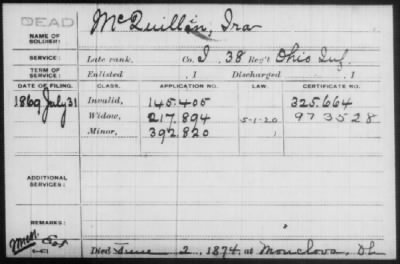 DEAD
McQuillan, Ira
NAME OF
SOLDIER:
SERVICE:
Late rank, Co. I, 38 Reg't Ohio Inf.
TERM OF
SERVICE:
Enlisted , 1 Discharged , 1
DATE OF FILING. CLASS. APPLICATION NO. LAW. CERTIFICATE NO.
1869 July 31 Invalid, 145.405 325.664
Widow, 217.894 5-1-20 973528
Minor, 392.820
ADDITIONAL
SERVICES:
REMARKS:
Died June 2, 1874, at Monclova, Oh